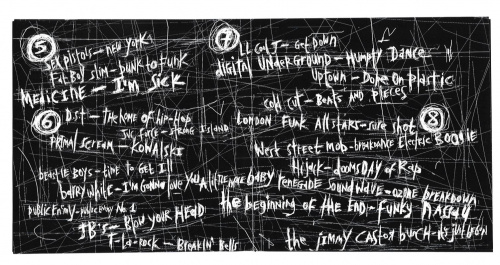 5
SEX PISTOLS - NEW YORK
FATBOY SLIM - PUNK TO FUNK
MEDICINE - I'M SICK
6
D.ST - THE HOME OF HIP-HOP
JUICE - STRONG ISLAND
PRIMAL SCREAM - KOWALSKI
BEASTIE BOYS - TIME TO GET ILL
BARRY WHITE - I'M GONNA LOVE YOU A LITTLE MORE BABY
PUBLIC ENEMY - PUBLIC ENEMY NO. 1
JB'S - BLOW YOUR HEAD
T-LA-ROCK - BREAKIN' BELLS
7
LL COOL J - GET DOWN
DIGITAL UNDERGROUND - HUMPTY DANCE
UPTOWN - DOPE ON PLASTIC
COLD CUT - BEATS AND PIECES
LONDON FUNK ALLSTARS - SURE SHOT
8
WEST STREET MOB - BREAKDANCE ELECTRIC BOOGIE
HIJACK - DOOMSDAY OF RAP
RENEGADE SOUNDWAVE - OZONE BREAKDOWN
THE BEGINNING OF THE END - FUNKY NASSAU
THE JIMMY CASTOR BUNCH - IT'S JUST BEGUN